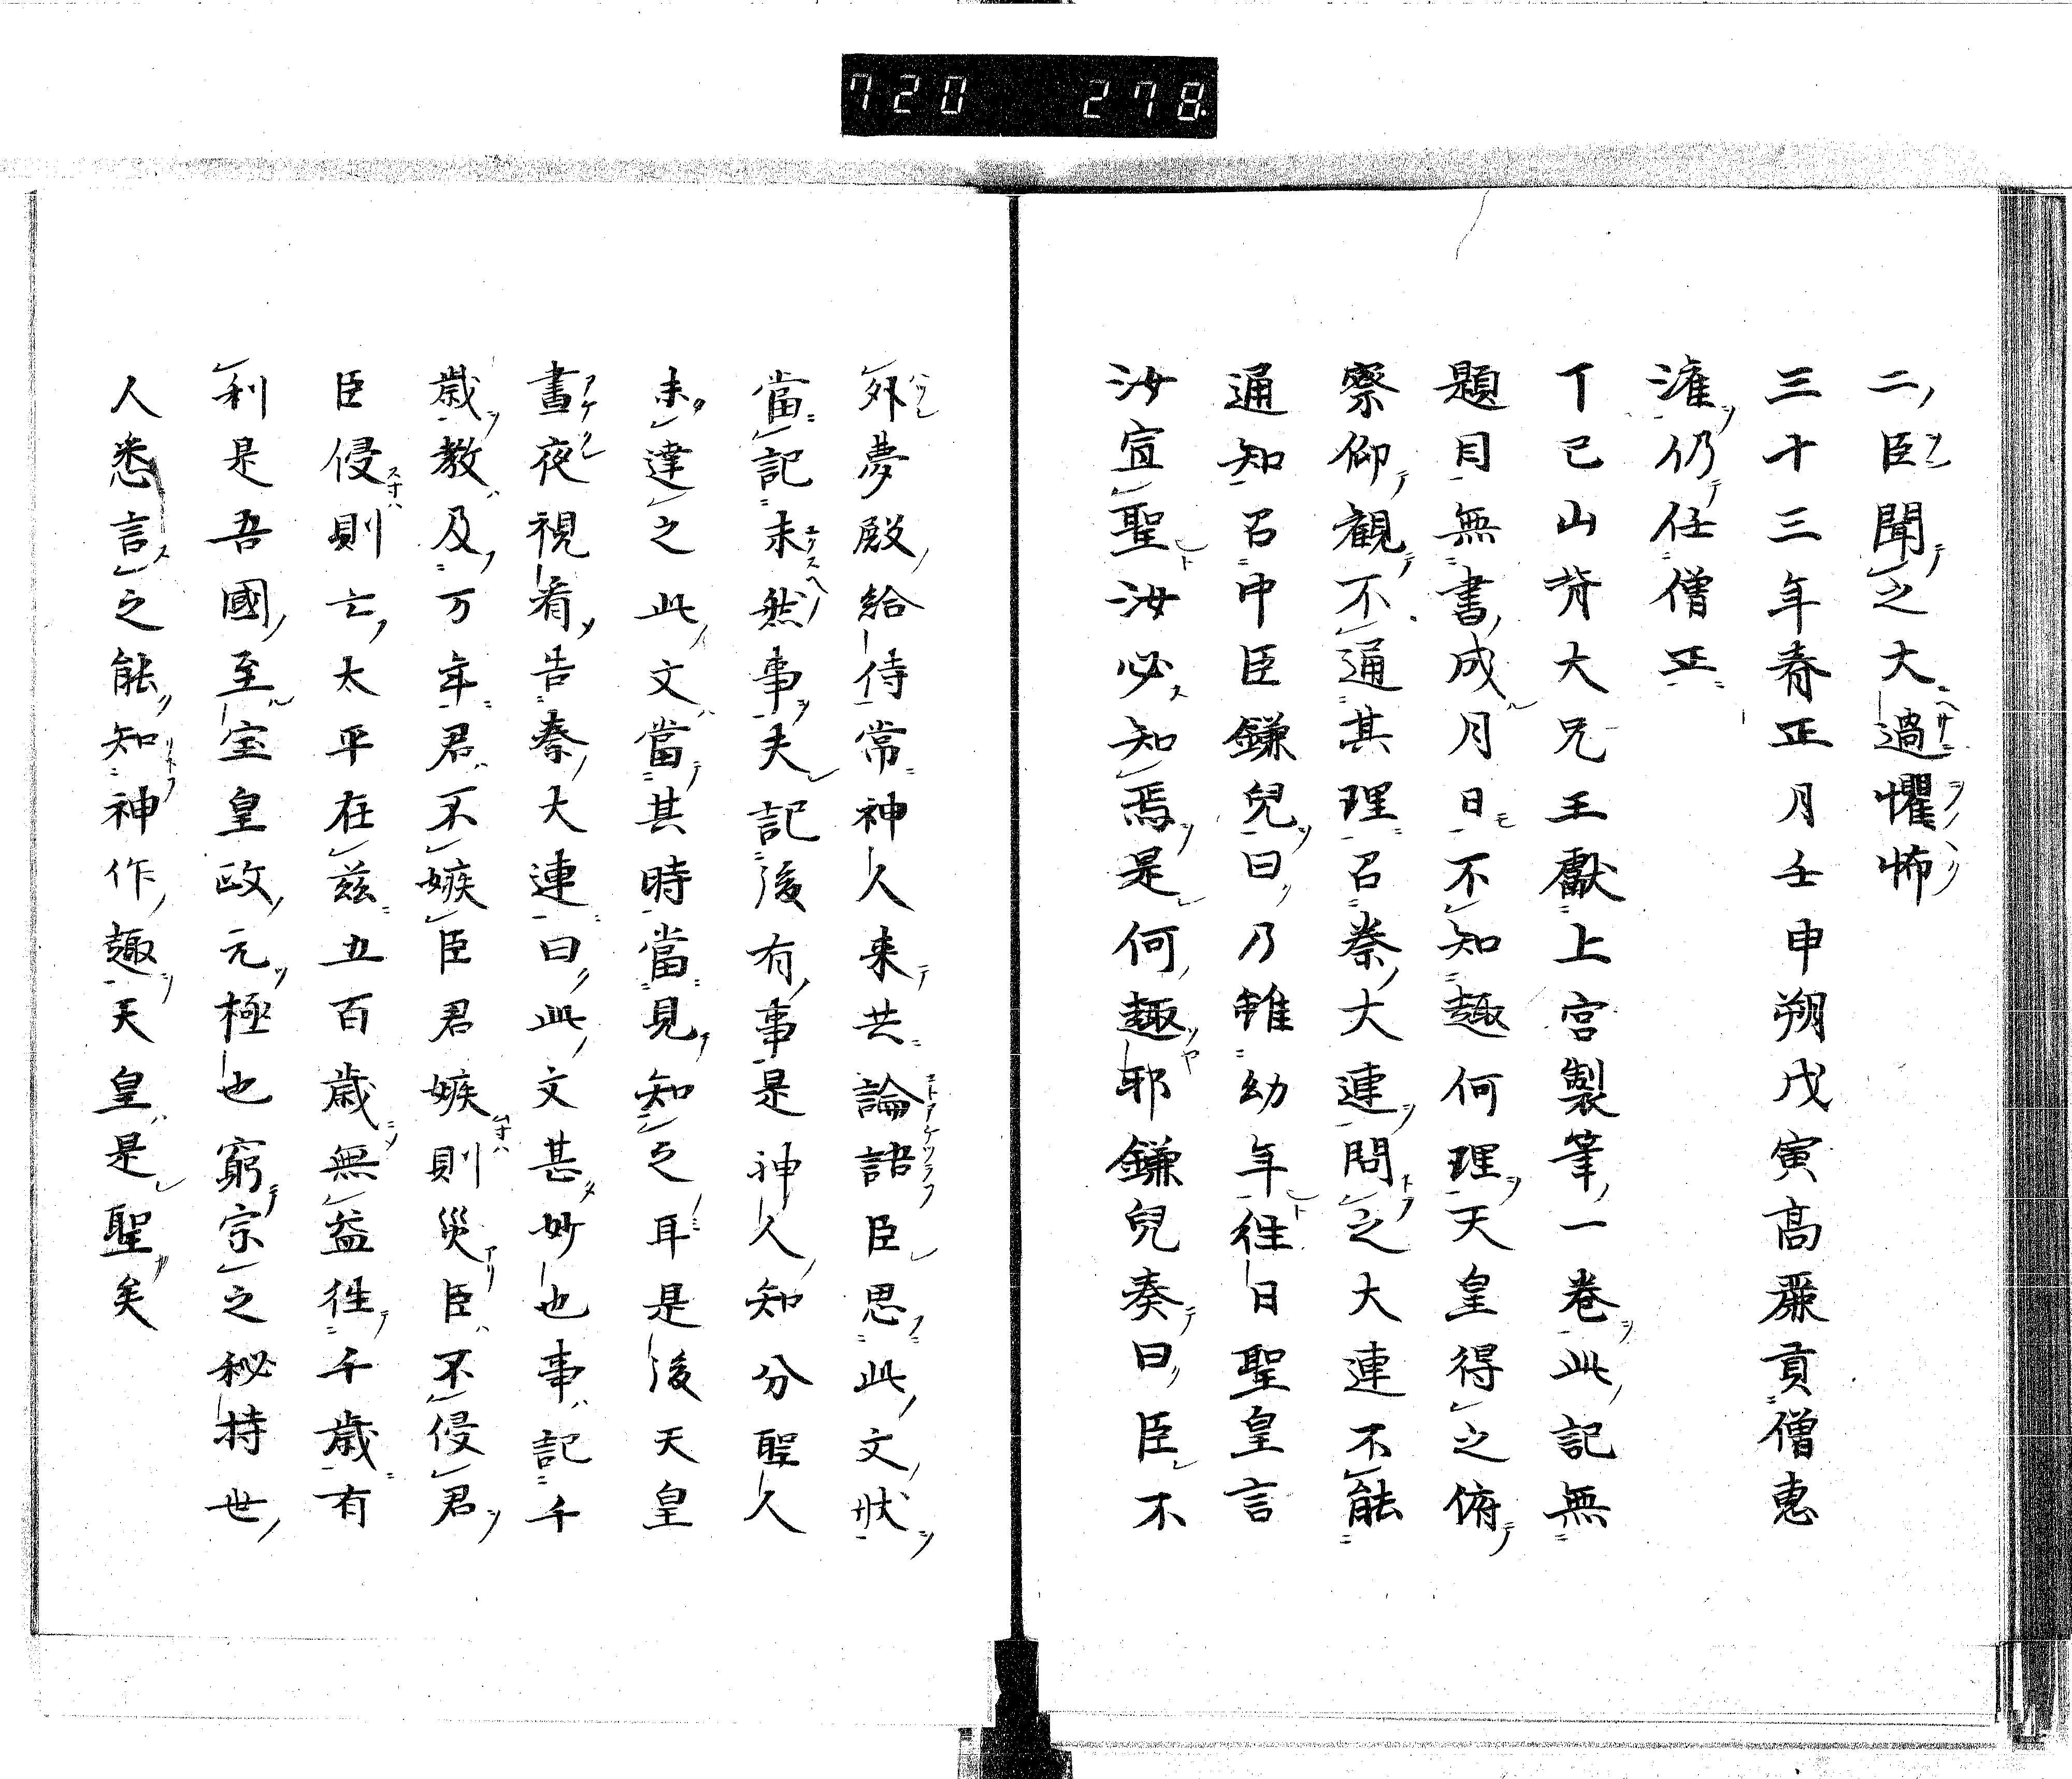 720 278
二臣聞之大過懼怖
三十三年春正月壬申朔戊寅高麗貢僧恵
潅仍任僧正
丁巳山背大兄王獻上宮製筆一巻此記無
題目無書成月日不知趣何理天皇得之俯
察仰観不通其理召秦大連問之大連不能
通知召中臣鎌兒曰乃雖幼年往日聖皇言
汝宣聖汝汝必知焉是何趣耶鎌兒奏曰臣不
外夢殿給侍常神人来共論語臣思此文状
當記未然事夫記後有事是神人知分聖人
未達之此文當其時當見知之耳是後天皇
晝夜視看告秦大連曰此文甚妙也事記千
歳教及万年君不嫉臣君嫉則災臣不侵君
臣侵則亡太平在茲五百歳無益往千歳有
利是吾國至宝皇政元極也窮宗之秘持世
人悉言之能知神作趣天皇是聖矣